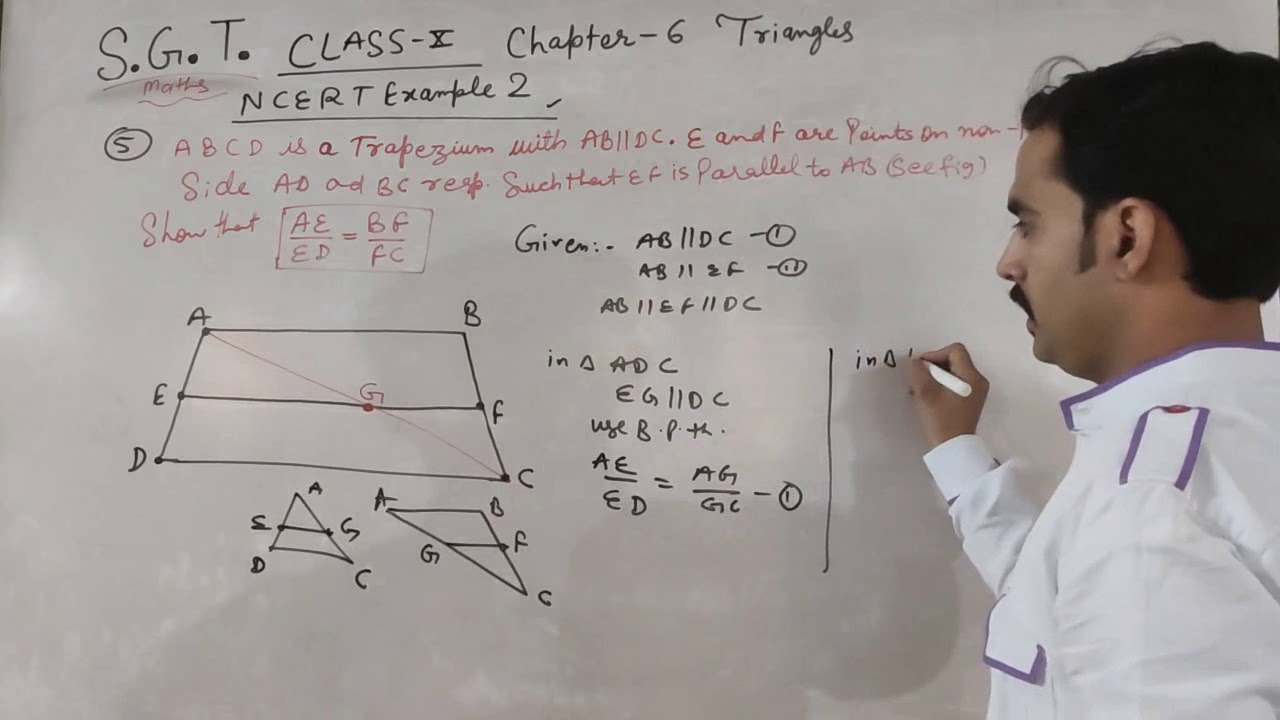 S.G.T. CLASS-X Chapter-6 Triangles
maths
NCERT Example 2
⑤ ABCD is a Trapezium with AB||DC. E and F are Points on non-
Side AD ad BC resp. Such that EF is Parallel to AB (See fig)
Show that AE/ED = BF/FC
Given:- AB||DC -①
AB||EF -⑪
AB||EF||DC
A B
E G F
D C
A
E G
D C
A B
G F
C
in Δ ADC
EG||DC
use B.P.th.
AE/ED = AG/GC -①
in Δ